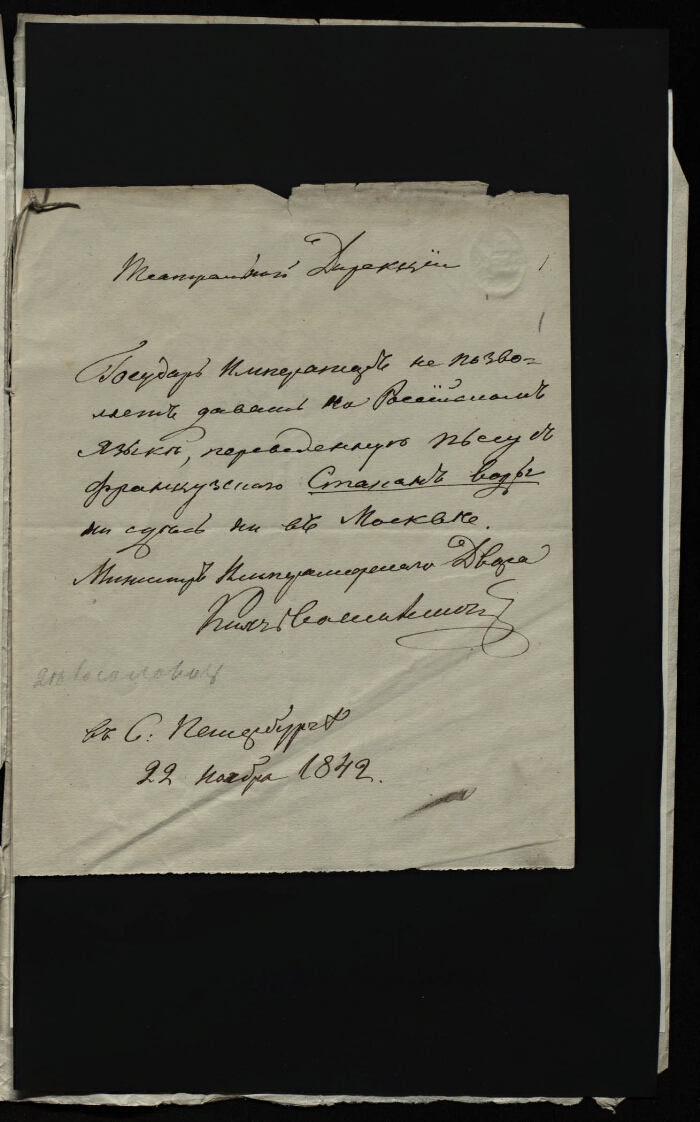 Театральной Дирекціи
Государь Императоръ не позво-
ляетъ давать на Россійскомъ
языкѣ, переведенную піесу съ
французскаго Стаканъ воды
ни здѣсь ни въ Москвѣ.
Министръ Императорскаго Двора
Князь Волконскій
въ С: Петербургѣ
22 ноября 1842.